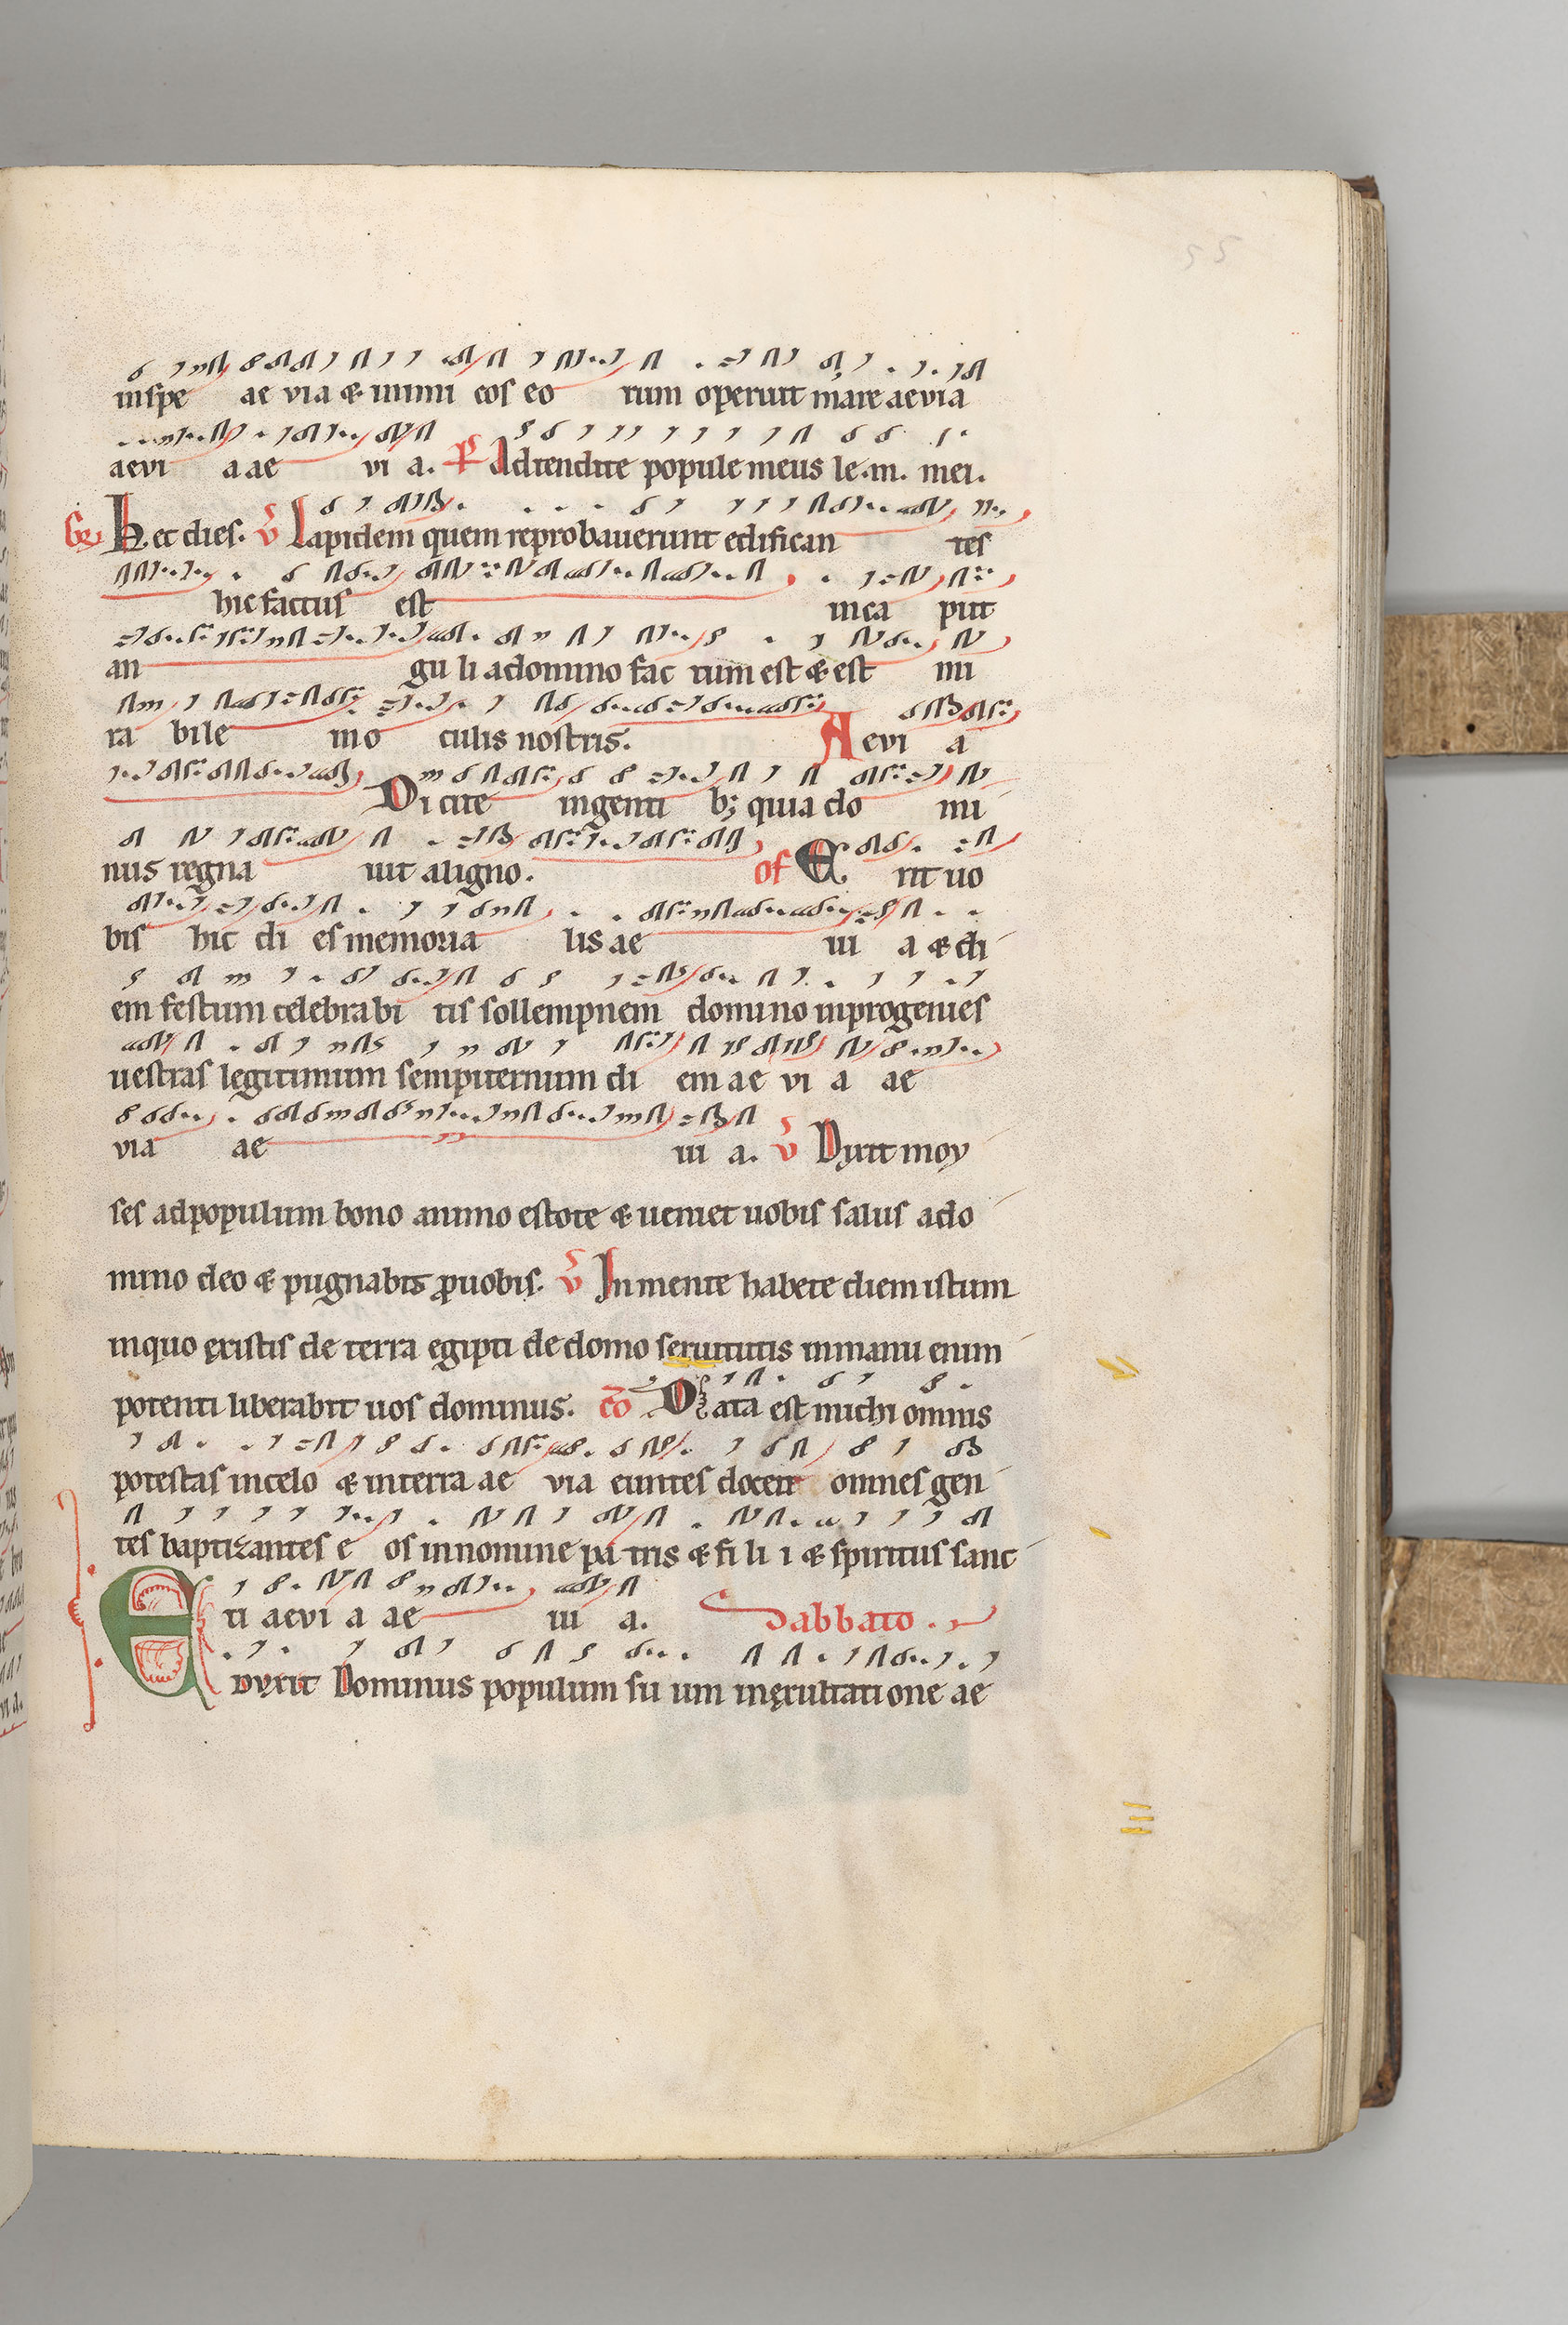 55
in spe ae via & inimi cos eo rum operuit mare aevia
aevi a ae vi a. Ps Adtendite popule meus le.m. mei.
Gr. hec dies. v Lapidem quem reprobauerunt edifican tes
hic factus est inca put
an gu li adomino fac tum est & est mi
ra bile ino culis nostris. A evi a
Di cite ingenti b; quia do mi
nus regna uit aligno. of E rit uo
bis hic di es memoria lis ae ui a & di
em festum celebrabi tis sollempnem domino inprogenies
uestras legitimum sempiternum di em ae vi a ae
via ae ui a. v Dyxit moy
ses adpopulum bono animo estote & ueniet uobis salus ado
mino deo & pugnabit puobis. v In mente habete diem istum
inquo existis de terra egipti de domo seruitutis inmanu enim
potenti liberabit uos dominus. co Data est michi omnis
potestas incelo & interra ae via euntes docete omnes gen
tes baptizantes e os innomine pa tris & fi li i & spiritus sanc
ti aevi a ae ui a. Sabbato.
Edvxit Dominus populum su um inexultatione ae